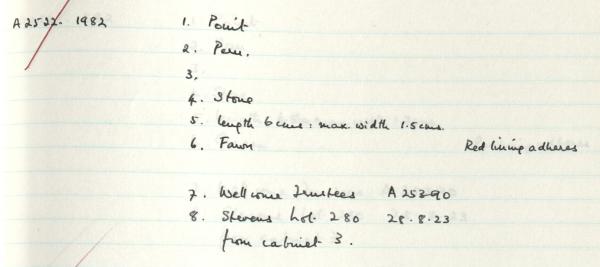 A2522. 1982 1. Point
2. Peru.
3.
4. Stone
5. length 6 cms : max. width 1.5 cms.
6. Fawn Red lining adheres
7. Wellcome Trustees A 25390
8. Stevens Lot 280 28.8.23
from cabinet 3.